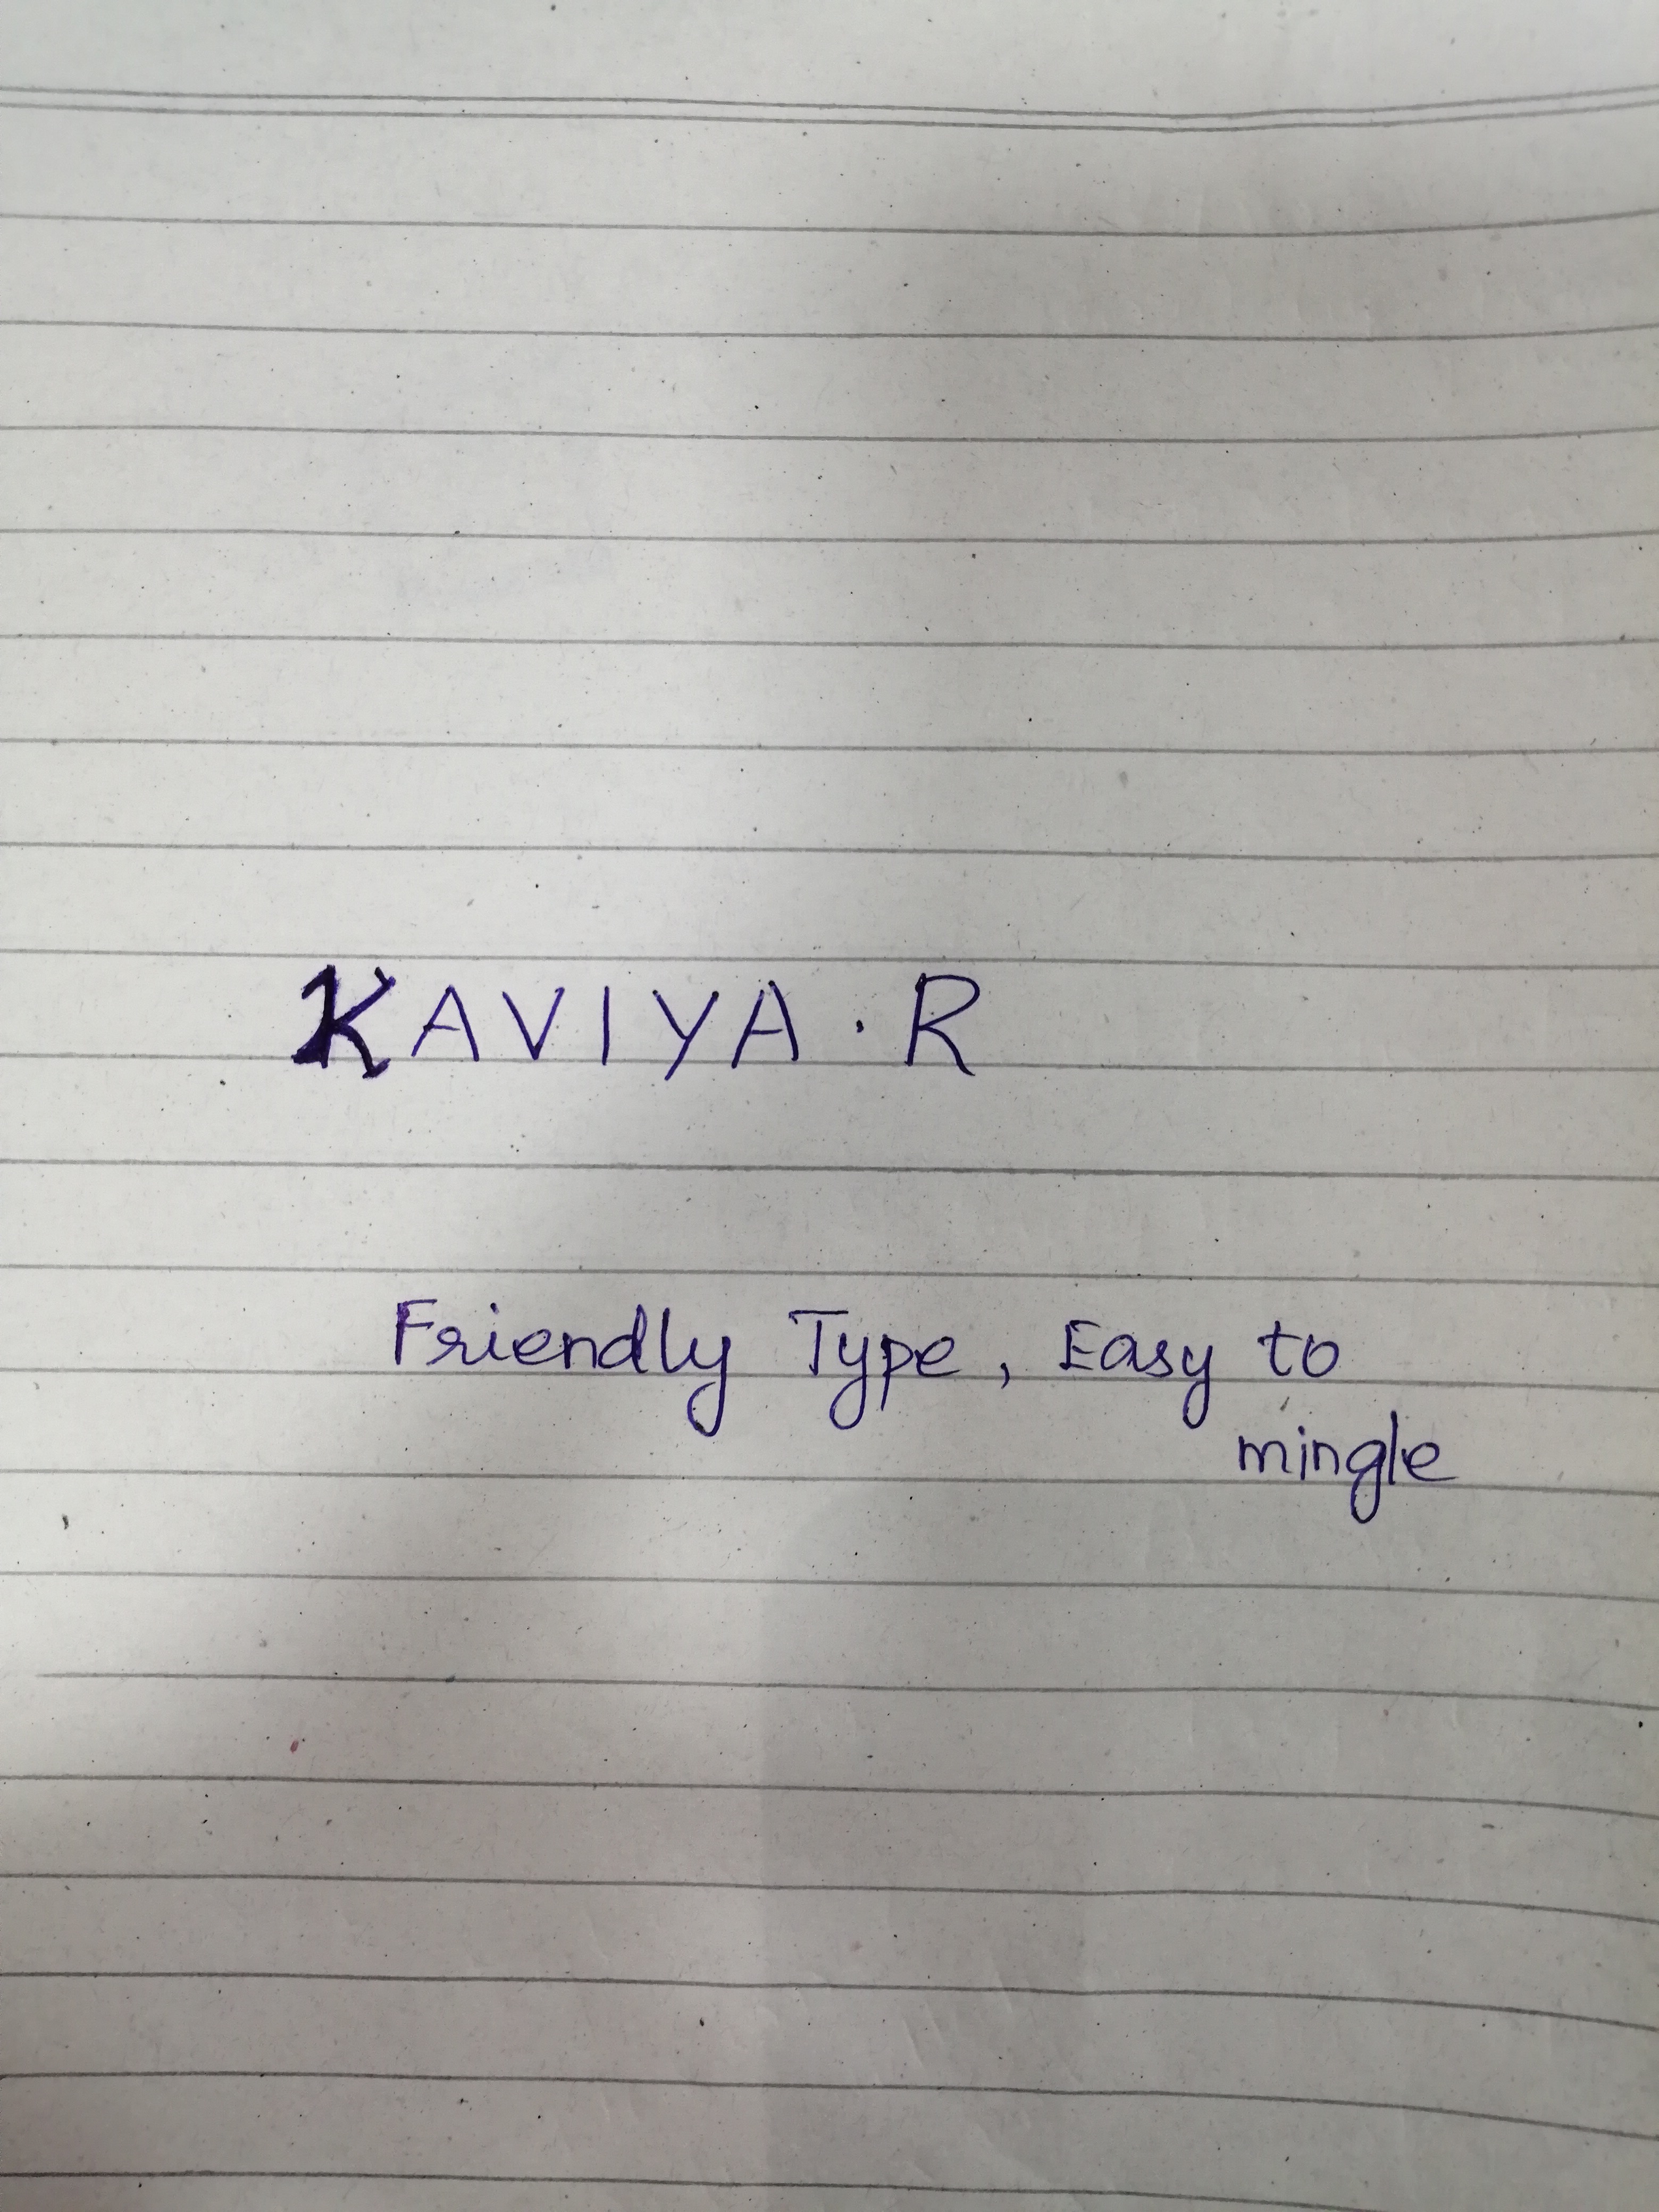 KAVIYA . R
Friendly Type, Easy to
mingle